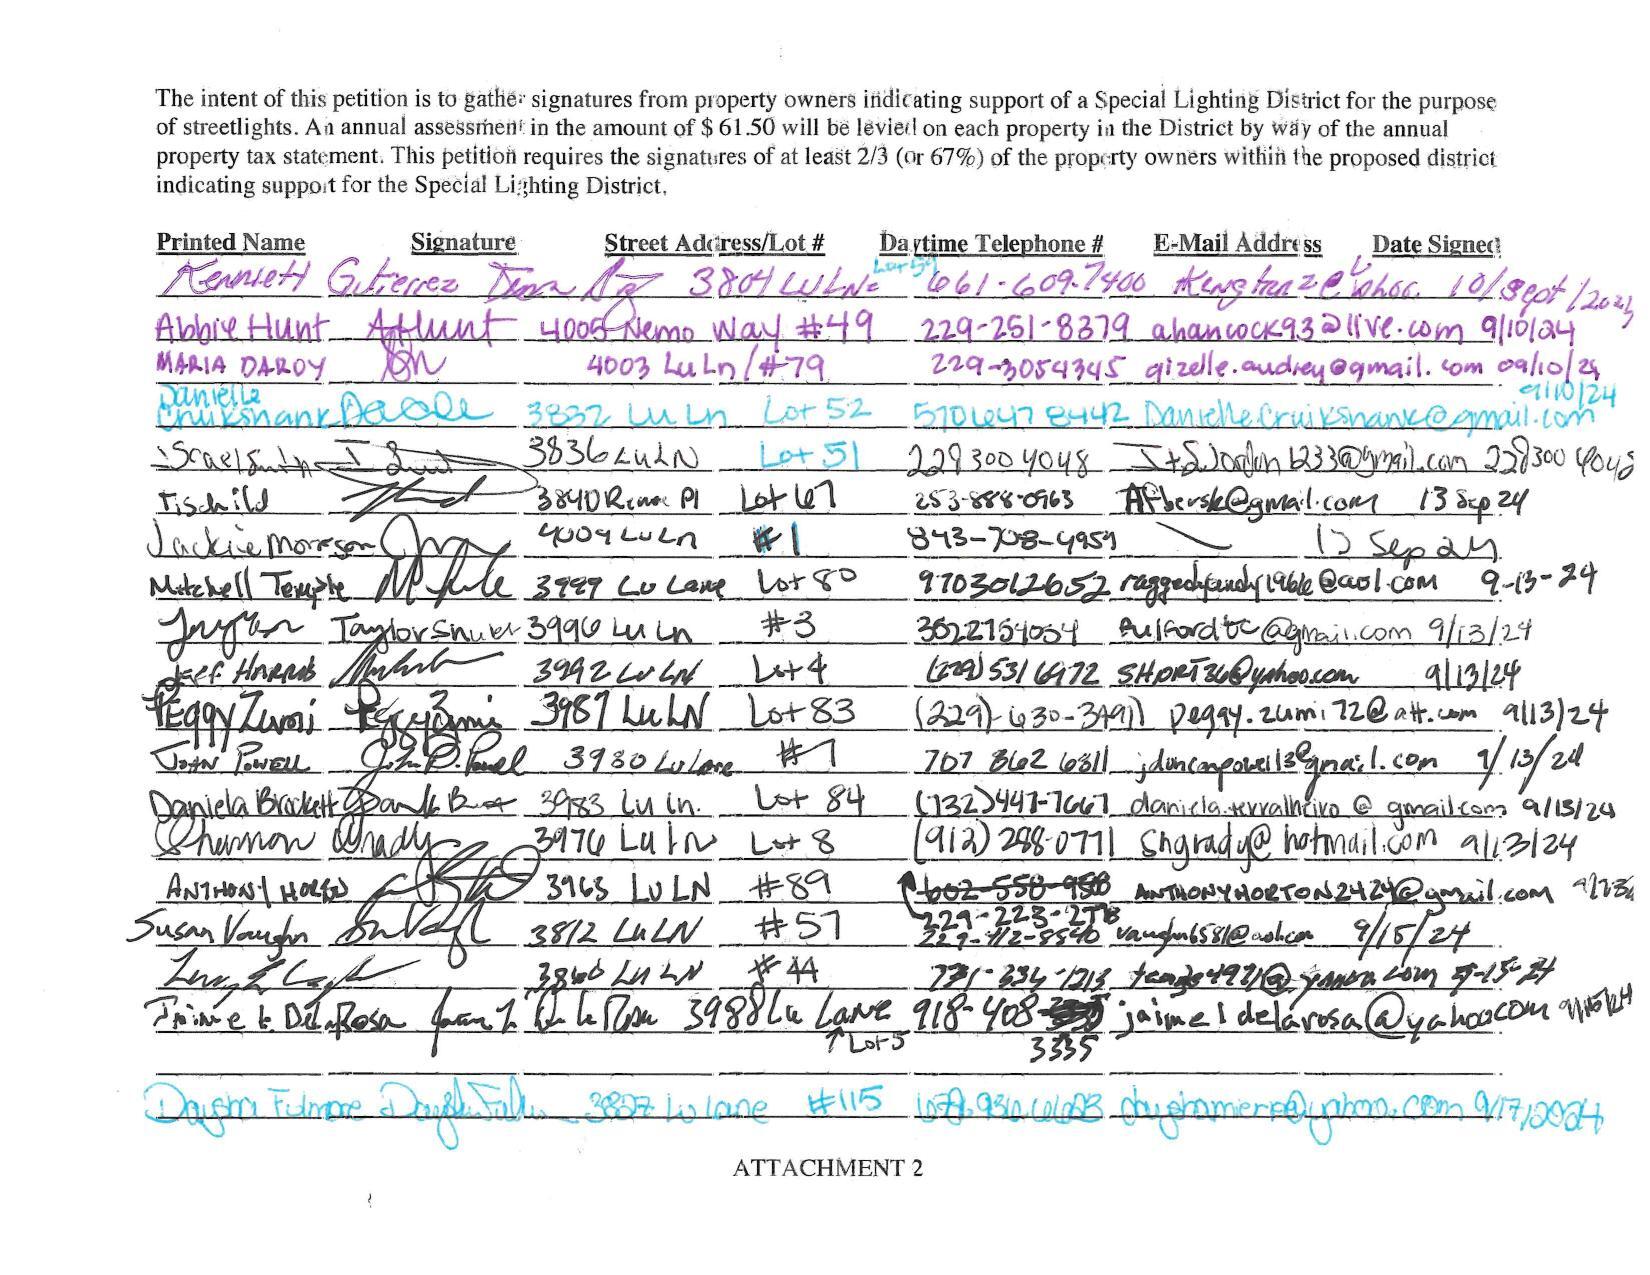 The intent of this petition is to gather signatures from property owners indicating support of a Special Lighting District for the purpose
of streetlights. An annual assessment in the amount of $ 61.50 will be levied on each property in the District by way of the annual
property tax statement. This petition requires the signatures of at least 2/3 (or 67%) of the property owners within the proposed district
indicating support for the Special Lighting District.
Printed Name Signature Street Address/Lot # Daytime Telephone # E-Mail Address Date Signed
Kennett Gutierrez 3804 Lu LN Lot 59 661-609-7400 10/Sept/2024
Abbie Hunt AHunt 4005 Nemo Way #49 229-251-8379 ahancock93@live.com 9/10/24
MARIA DAROY 4003 Lu Ln/#79 229-3054345 gizelle.audrey@gmail.com 09/10/24
Danielle 9/10/24
Cruikshank 3832 Lu Ln Lot 52 5706478442 Danielle.Cruikshank@gmail.com
3836 Lu LN Lot 51 229 300 4048 229 300 4048
Tischild 3840 Pl Lot 67 253-888-0963 Afbersk@gmail.com 13 Sep 24
Jackie 4004 Lu Ln #1 843-708-4959 Sep 24
Mitchell Temple 3999 Lu Lane Lot 80 9703012652 9-13-24
Taylor 3996 Lu Ln #3 3522154054 fulfordtc@gmail.com 9/13/24
Jeff HARRIS 3992 Lu LN Lot 4 (229) 531 6972 SHORT36@yahoo.com 9/13/24
PEGGY Zumi 3987 Lu LN Lot 83 (229)-630-3491) peggy.zumi72@att.com 9/13/24
JOHN POWELL John P. Powel 3980 Lu Lane #7 707 862 6311 jduncanpowell3@gmail.com 9/13/24
Daniela Brackett 3983 Lu ln. Lot 84 (732)447-7667 daniela.terralheiro@gmail.com 9/13/24
Shannon Grady 3976 Lu Ln Lot 8 (912) 288-0771 Shgrady@hotmail.com 9/13/24
ANTHONY 3963 LU LN #89 602-558-958 ANTHONYHORTON2424@gmail.com
229-223-
Susan Vaughn 3812 Lu LN #57 229-412-8540 vaughn6581@aol.com 9/15/24
3860 Lu LN #44 731-334-1213 9-15-24
Jaime L De La Rosa 3988 Lu Lane 918-408- jaimeldelarosa@yahoo.com 9/15/24
↑ Lot 5 3335
Daysha Fulmore 3827 Lu lane #115 9/17/2024
ATTACHMENT 2